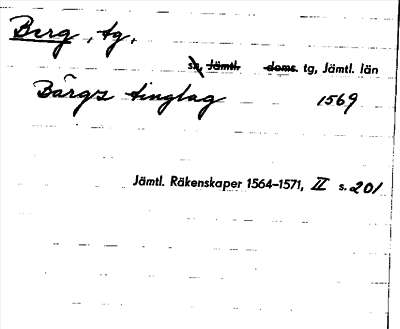 Berg, tg.
sn, Jämtl. doms. tg, Jämtl. län
Bärgz tinglag 1569
Jämtl. Räkenskaper 1564–1571, II s. 201